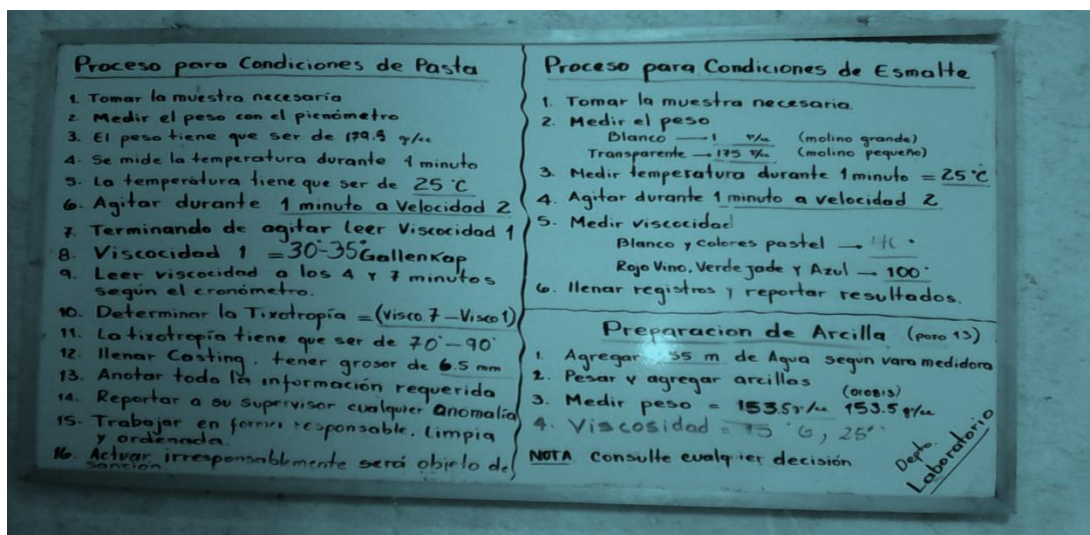 Proceso para Condiciones de Pasta
1. Tomar la muestra necesaria
2. Medir el peso con el picnómetro
3. El peso tiene que ser de 179.5 gr/cc
4. Se mide la temperatura durante 1 minuto
5. La temperatura tiene que ser de 25°C
6. Agitar durante 1 minuto a Velocidad 2
7. Terminando de agitar leer Viscocidad 1
8. Viscocidad 1 = 30°-35° Gallenkap
9. Leer viscocidad a los 4 y 7 minutos
según el cronómetro.
10. Determinar la Tixotropía = (Visco.7 - Visco 1)
11. La tixotropía tiene que ser de 70°-90°
12. llenar Casting. tener grosor de 6.5 mm
13. Anotar toda la información requerida
14. Reportar a su supervisor cualquier anomalía
15. Trabajar en forma responsable. Limpia
y ordenada.
16. Actuar irresponsablemente será objeto de
sanción
Proceso para Condiciones de Esmalte
1. Tomar la muestra necesaria.
2. Medir el peso
Blanco → 1 (molino grande)
Transparente → 175 (molino pequeño)
3. Medir temperatura durante 1 minuto = 25°C
4. Agitar durante 1 minuto a velocidad 2
5. Medir viscocidad
Blanco y colores pastel →
Rojo Vino, Verde jade y Azul — 100°
6. llenar registros y reportar resultados.
Preparacion de Arcilla (pozo 13)
1. Agregar 55 m de Agua según vara medidora
2. Pesar y agregar arcillas
3. Medir peso = 153.5 gr/cc 153.5 gr/cc
4. Viscosidad =
NOTA consulte cualquier decisión
Depto.
Laboratorio